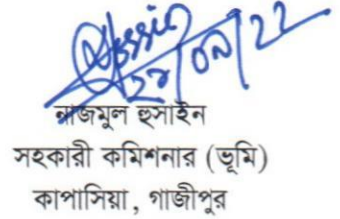 ২৮/০৯/২২
নাজমুল হুসাইন
সহকারী কমিশনার (ভূমি)
কাপাসিয়া, গাজীপুর